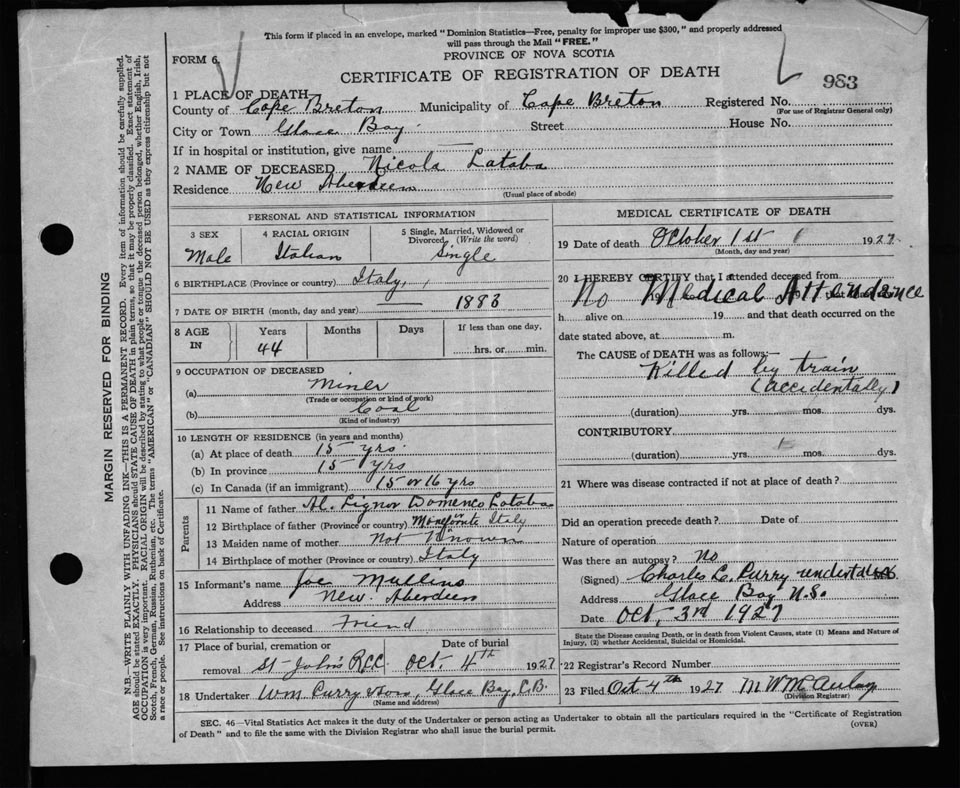 This form if placed in an envelope, marked "Dominion Statistics—Free, penalty for improper use $300," and properly addressed
will pass through the Mail "FREE."
FORM 6
PROVINCE OF NOVA SCOTIA
CERTIFICATE OF REGISTRATION OF DEATH
983
1 PLACE OF DEATH
County of Cape Breton Municipality of Cape Breton Registered No.
(For use of Registrar General only)
City or Town Glace Bay Street House No.
If in hospital or institution, give name —
2 NAME OF DECEASED Nicola Lataba
Residence New Aberdeen
(Usual place of abode)
PERSONAL AND STATISTICAL INFORMATION
3 SEX 4 RACIAL ORIGIN 5 Single, Married, Widowed or
Divorced, (Write the word)
Male Italian Single
6 BIRTHPLACE (Province or country) Italy
7 DATE OF BIRTH (month, day and year) — 1883
8 AGE IN Years Months Days If less than one day,
44 hrs. or min.
9 OCCUPATION OF DECEASED
(a) Miner
(Trade or occupation or kind of work)
(b) Coal
(Kind of industry)
10 LENGTH OF RESIDENCE (in years and months)
(a) At place of death 15 yrs
(b) In province 15 yrs
(c) In Canada (if an immigrant) 15 or 16 yrs
Parents
11 Name of father Lataba
12 Birthplace of father (Province or country) Italy
13 Maiden name of mother Not Known
14 Birthplace of mother (Province or country) Italy
15 Informant's name Joe Mullins
Address New Aberdeen
16 Relationship to deceased Friend
17 Place of burial, cremation or Date of burial
removal St-John's RCC Oct. 4th 1927
18 Undertaker Wm Curry & Son, Glace Bay, C.B.
(Name and address)
MEDICAL CERTIFICATE OF DEATH
19 Date of death October 1st 1927
(Month, day and year)
20 I HEREBY CERTIFY that I attended deceased from
No Medical Attendence
h alive on 19 and that death occurred on the
date stated above, at m.
The CAUSE of DEATH was as follows:—
Killed by train
(accidentally)
(duration) yrs. mos. dys.
CONTRIBUTORY
(duration) yrs. mos. dys.
21 Where was disease contracted if not at place of death?
Did an operation precede death? Date of
Nature of operation
Was there an autopsy? No
(Signed) Charles C. Curry undertaker
Address Glace Bay N.S.
Date Oct, 3rd 1927
State the Disease causing Death, or in death from Violent Causes, state (1) Means and Nature of
Injury, (2) whether Accidental, Suicidal or Homicidal.
22 Registrar's Record Number
23 Filed Oct 4th 1927 M W McAulay
(Division Registrar)
SEC. 46—Vital Statistics Act makes it the duty of the Undertaker or person acting as Undertaker to obtain all the particulars required in the "Certificate of Registration
of Death" and to file the same with the Division Registrar who shall issue the burial permit.
(OVER)
MARGIN RESERVED FOR BINDING
N.B.—WRITE PLAINLY WITH UNFADING INK—THIS IS A PERMANENT RECORD. Every item of information should be carefully supplied.
AGE should be stated EXACTLY. PHYSICIANS should STATE CAUSE OF DEATH in plain terms, so that it may be properly classified. Exact statement of
OCCUPATION is very important. RACIAL ORIGIN will be described by stating to what people or tongue the deceased person belonged, whether English, Irish,
Scotch, French, German, Russian, Ruthenian, etc. The terms "AMERICAN" or "CANADIAN" SHOULD NOT BE USED as they express citizenship but not
a race or people. See instructions on back of Certificate.